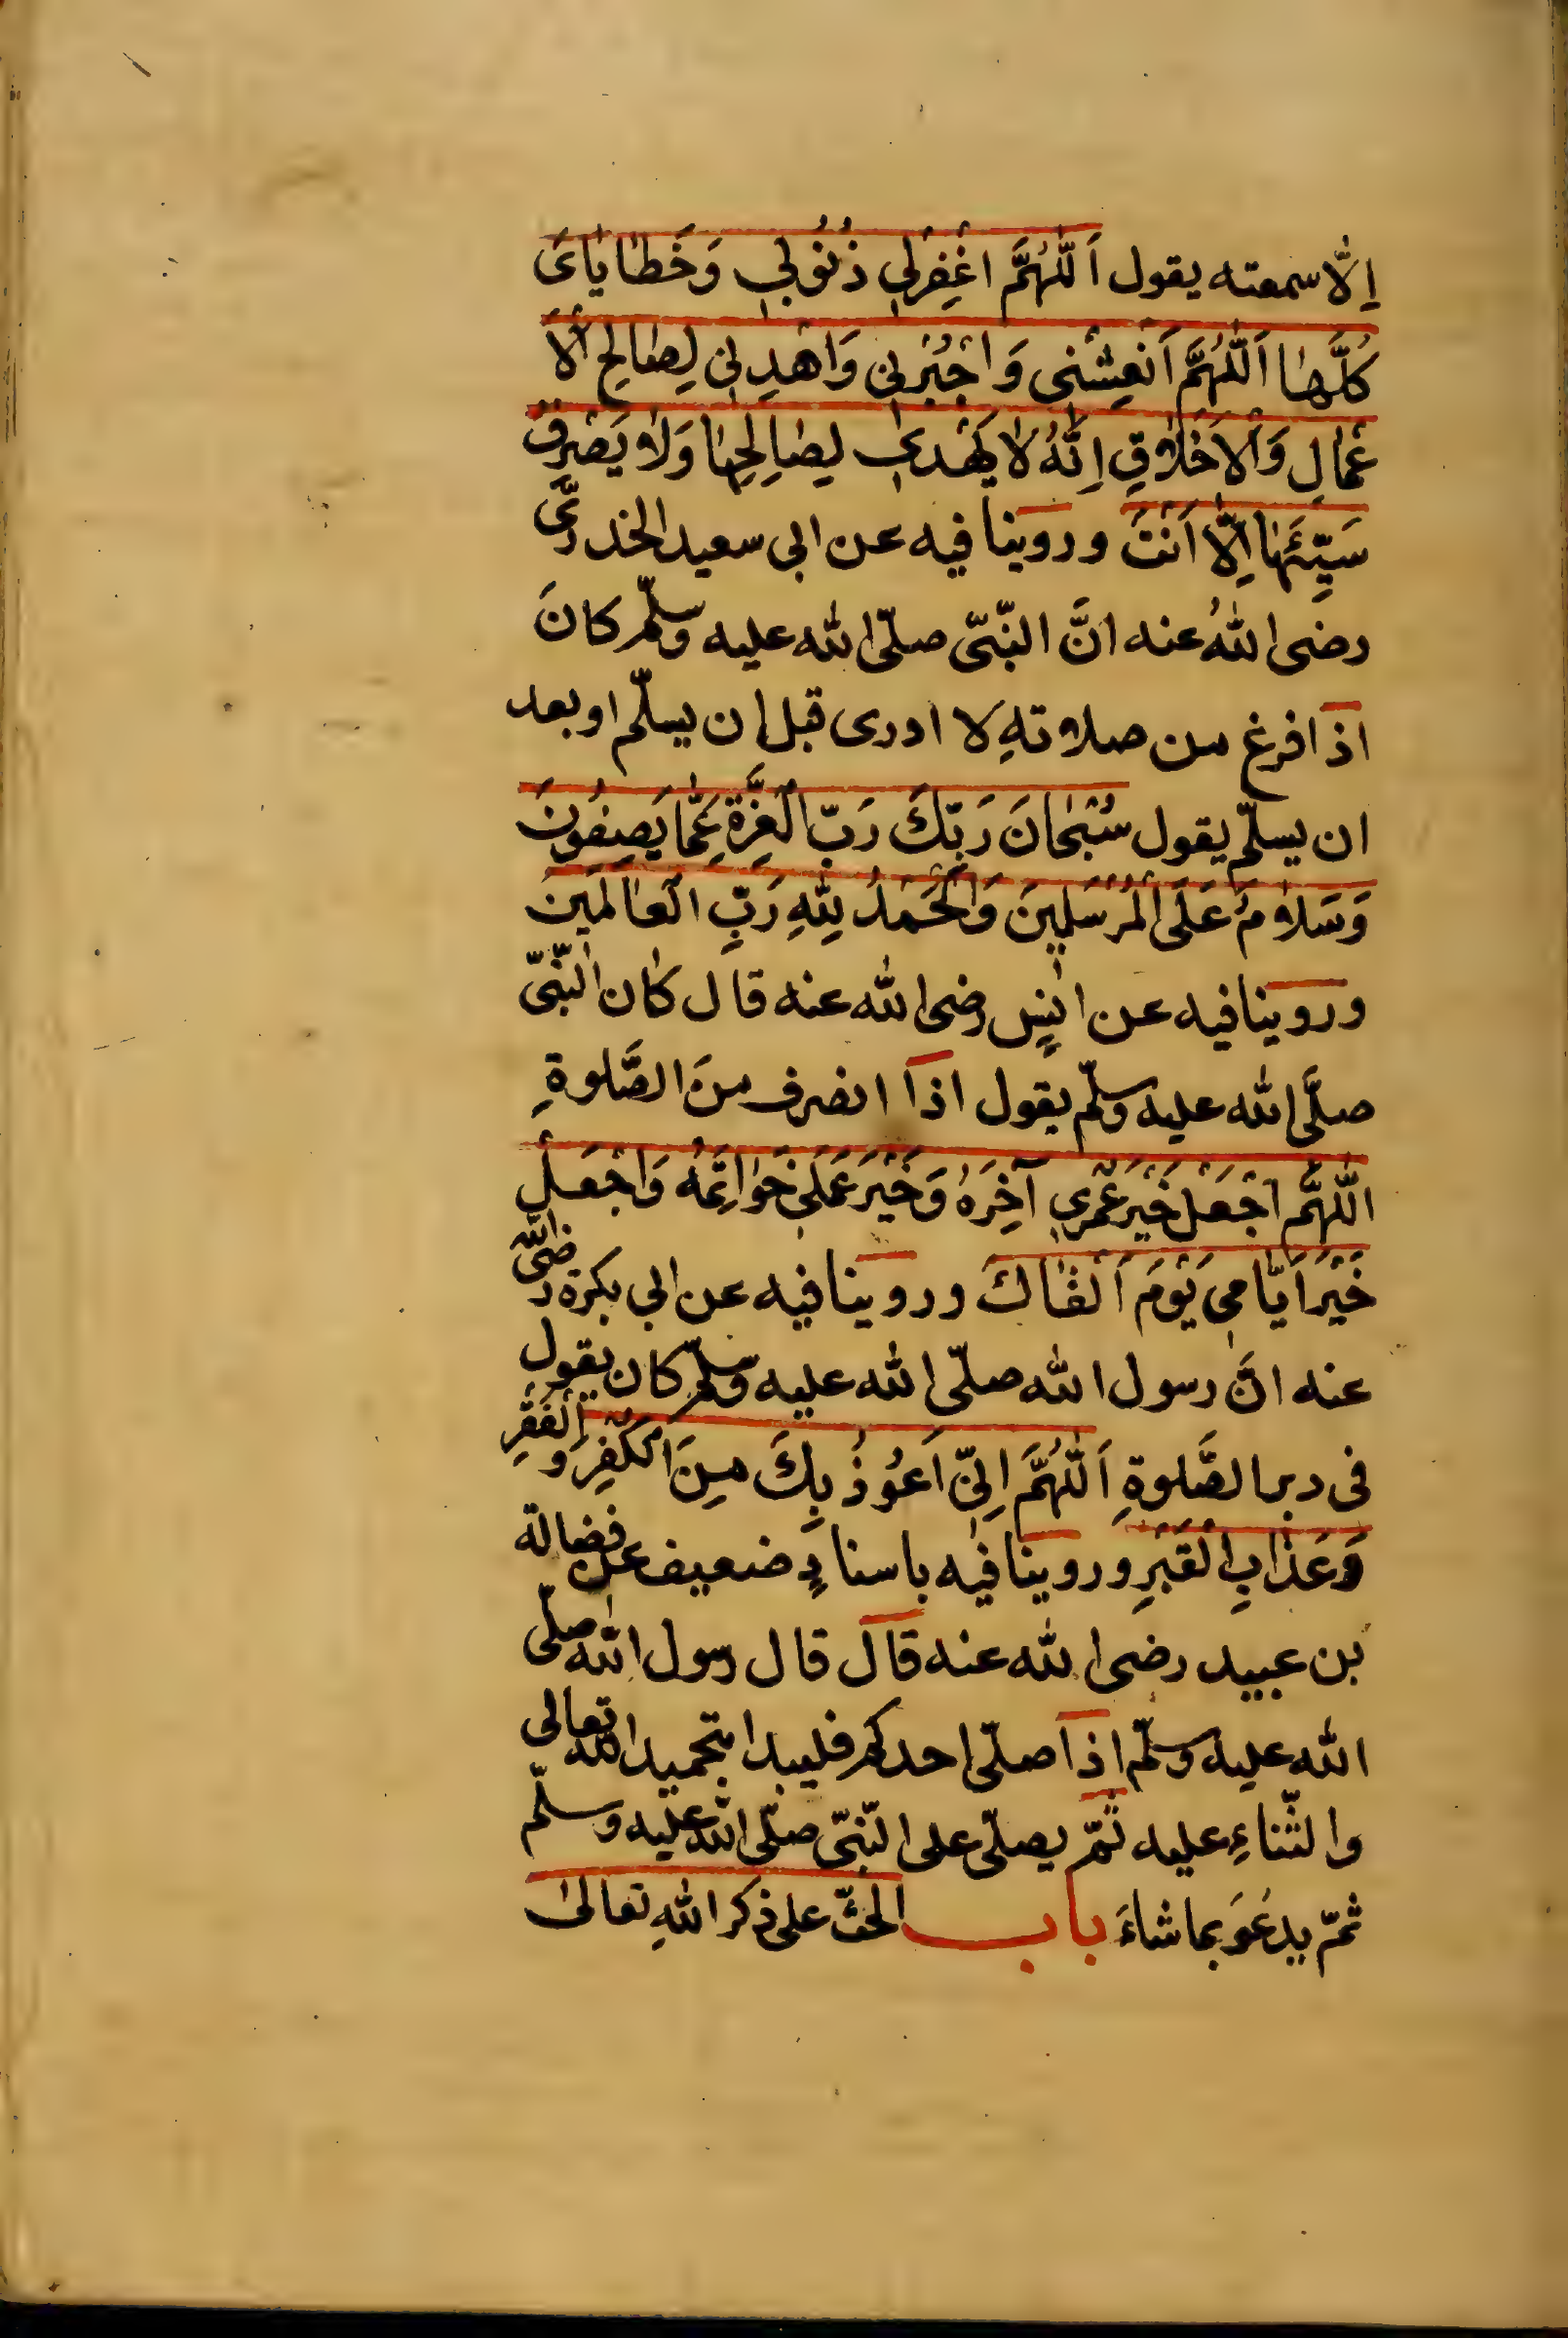 إلّا سمعته يقول اَللّٰهُمَّ اغْفِرْلي ذُنُوبي وَخَطٰايٰاىَ
كُلَّهٰا اَللّٰهُمَّ اَنْعِشْنى وَاجْبُرْنى وَاهْدِنى لِصٰالِحِ الْاَ
عْمٰالِ وَالْاَخْلٰاقِ اِنَّهُ لٰا يَهْدى لِصٰالِحِهٰا وَلٰا يَصْرِفُ
سَيِّئَهٰا اِلّٰا اَنْتَ وروينا فيه عن ابى سعيد الخدرىّ
رضى اللهُ عنه انَّ النّبىّ صلّى الله عليه وسلّم كانَ
اذا فرغ من صلاتهِ لا ادرى قبل ان يسلّم او بعد
ان يسلّم يقول سُبْحٰانَ رَبِّكَ رَبِّ الْعِزَّةِ عَمّٰا يَصِفُونَ
وَسَلٰامٌ عَلَى الْمُرْسَلينَ وَالْحَمْدُ لِلّٰهِ رَبِّ الْعٰالَمينَ
وروينا فيه عن انسٍ رضى الله عنه قال كان النّبىّ
صلَّى الله عليه وسلّم يقول اذا انصرف منَ الصَّلوةِ
اللّٰهُمَّ اجْعَلْ خَيْرَ عُمْرى آخِرَهُ وَخَيْرَ عَمَلى خَوٰاتِمَهُ وَاجْعَلْ
خَيْرَ اَيّٰامى يَوْمَ اَلْقٰاكَ وروينا فيه عن ابى بكرة رضى الله
عنه انَّ رسول الله صلّى الله عليه وسلّم كان يقول
فى دبر الصَّلوةِ اَللّٰهُمَّ اِنّى اَعُوذُ بِكَ مِنَ الْكُفْرِ وَالْفَقْرِ
وَعَذٰابِ الْقَبْرِ وروينا فيه باسنادٍ ضعيف عن فضالة
بن عبيد رضى الله عنه قال قال رسول الله صلّى
الله عليه وسلّم اذا صلّى احدكم فليبدا بتحميد الله تعالى
والثّناءِ عليه ثمّ يصلّى على النّبىّ صلّى الله عليه وسلّم
ثمّ يدعَو بما شاءَ باب الحثّ على ذكر اللهِ تعالىٰ